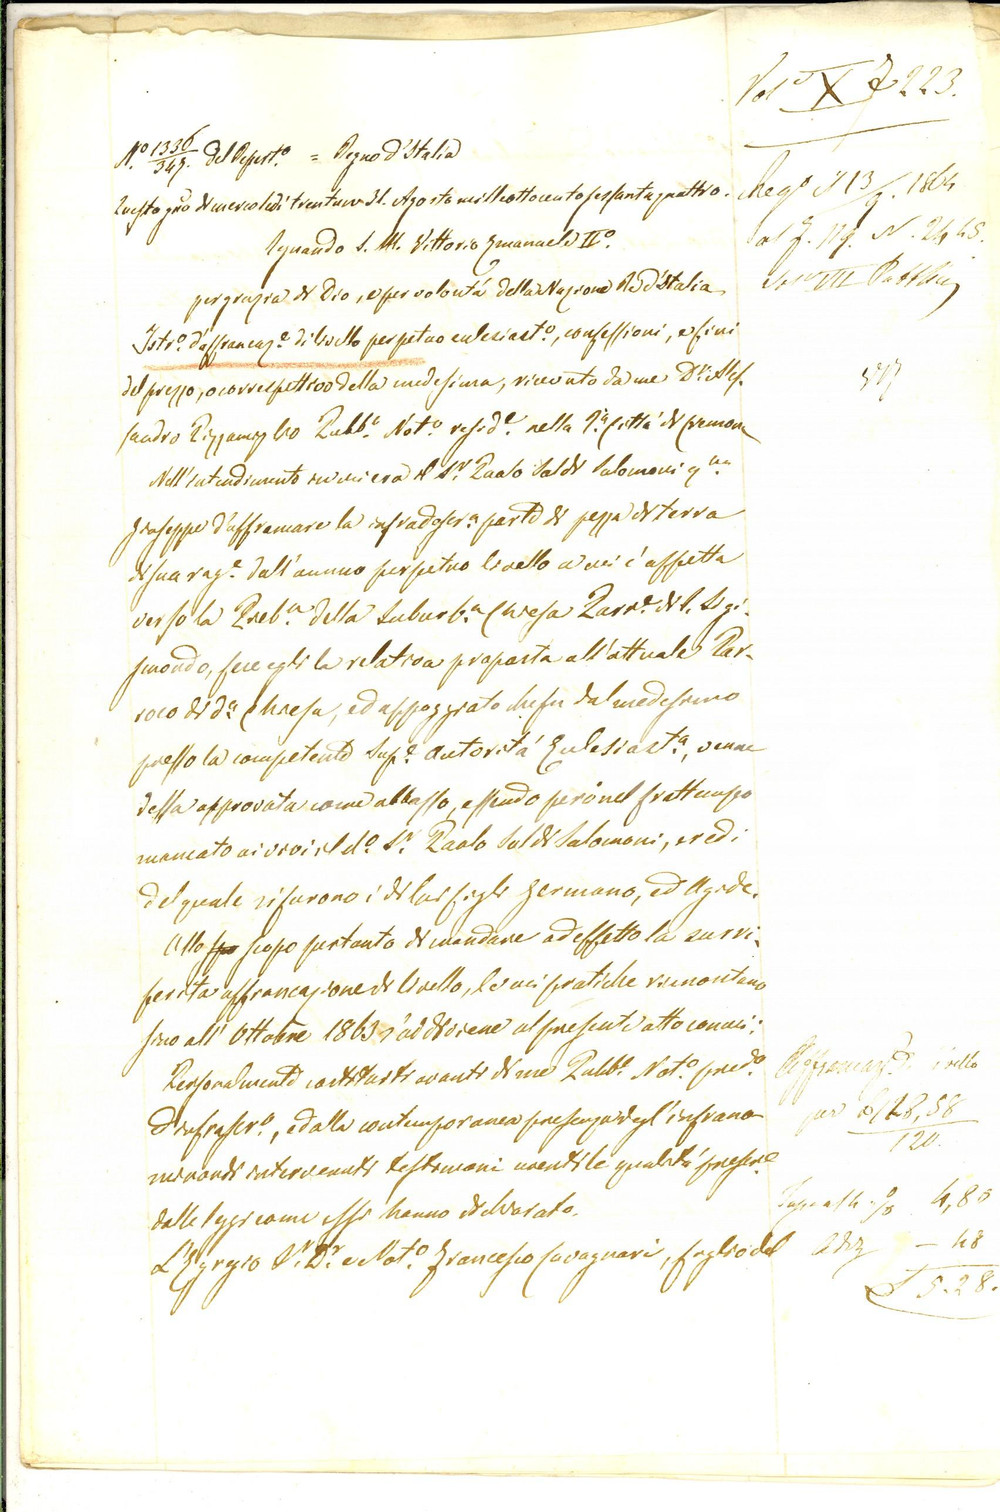 Vol. X F 223.
N.° 1336/347. del Repert.° = Regno d'Italia
Questo gno di mercoledì trentuno 31. Agosto milleottocentosessantaquattro.
Reg.° il 13/9. 1864
Regnando S. M. Vittorio Emanuele II°.
al N. 2445.
per grazia di Dio, e per volontà della Nazione Re d'Italia
VIII
Istr.° d'affrancaz.e di livello perpetuo eclesiast.°, confessioni, e fini
del prezzo, o correspettivo della medesima, ricevuto da me D.r Ales-
sandro Pizzamiglio Pubb.° Not.° resid.e nella R.a Città di Cremona
Nell'intendimento in cui era il S.r Paolo Soldi Salomoni q.m
Giuseppe d'affrancare la infradescr.a parte di pezza di terra
di sua rag.e dall'annuo perpetuo livello a cui è affetta
verso la Preb.a della Suburb.a Chiesa Parr.e di S. Sigi-
smondo, fece egli la relativa proposta all'attuale Par-
roco di d.a Chiesa, ed appoggiato che fu dal medesimo
presso la competente Sup.e Autorità Eclesiast.a, venne
dessa approvata come abbasso, essendo però nel frattempo
mancato ai vivi il d.° S.r Paolo Soldi Salomoni, eredi
del quale si furono i di lui figli Germano, ed Agide.
Allo scopo pertanto di mandare ad effetto la surri-
ferita affrancazione di livello, le cui pratiche rimontano
sino all'Ottobre 1863 s'addiviene al presente atto con cui:
Personalmente costituiti avanti di me Pubb.° Not.° pred.°
ed infrascr.°, e dalla contemporanea presenza degl'infrano-
minandi intervenuti testimoni aventi le qualità prescr.e
dalle leggi come essi hanno dichiarato.
L'Egregio S.r D.r e Not.° Francesco Cavagnari, figlio del
Affrancaz.e livello
per £ 128,58
120.
4,80
— 48
£ 5.28.